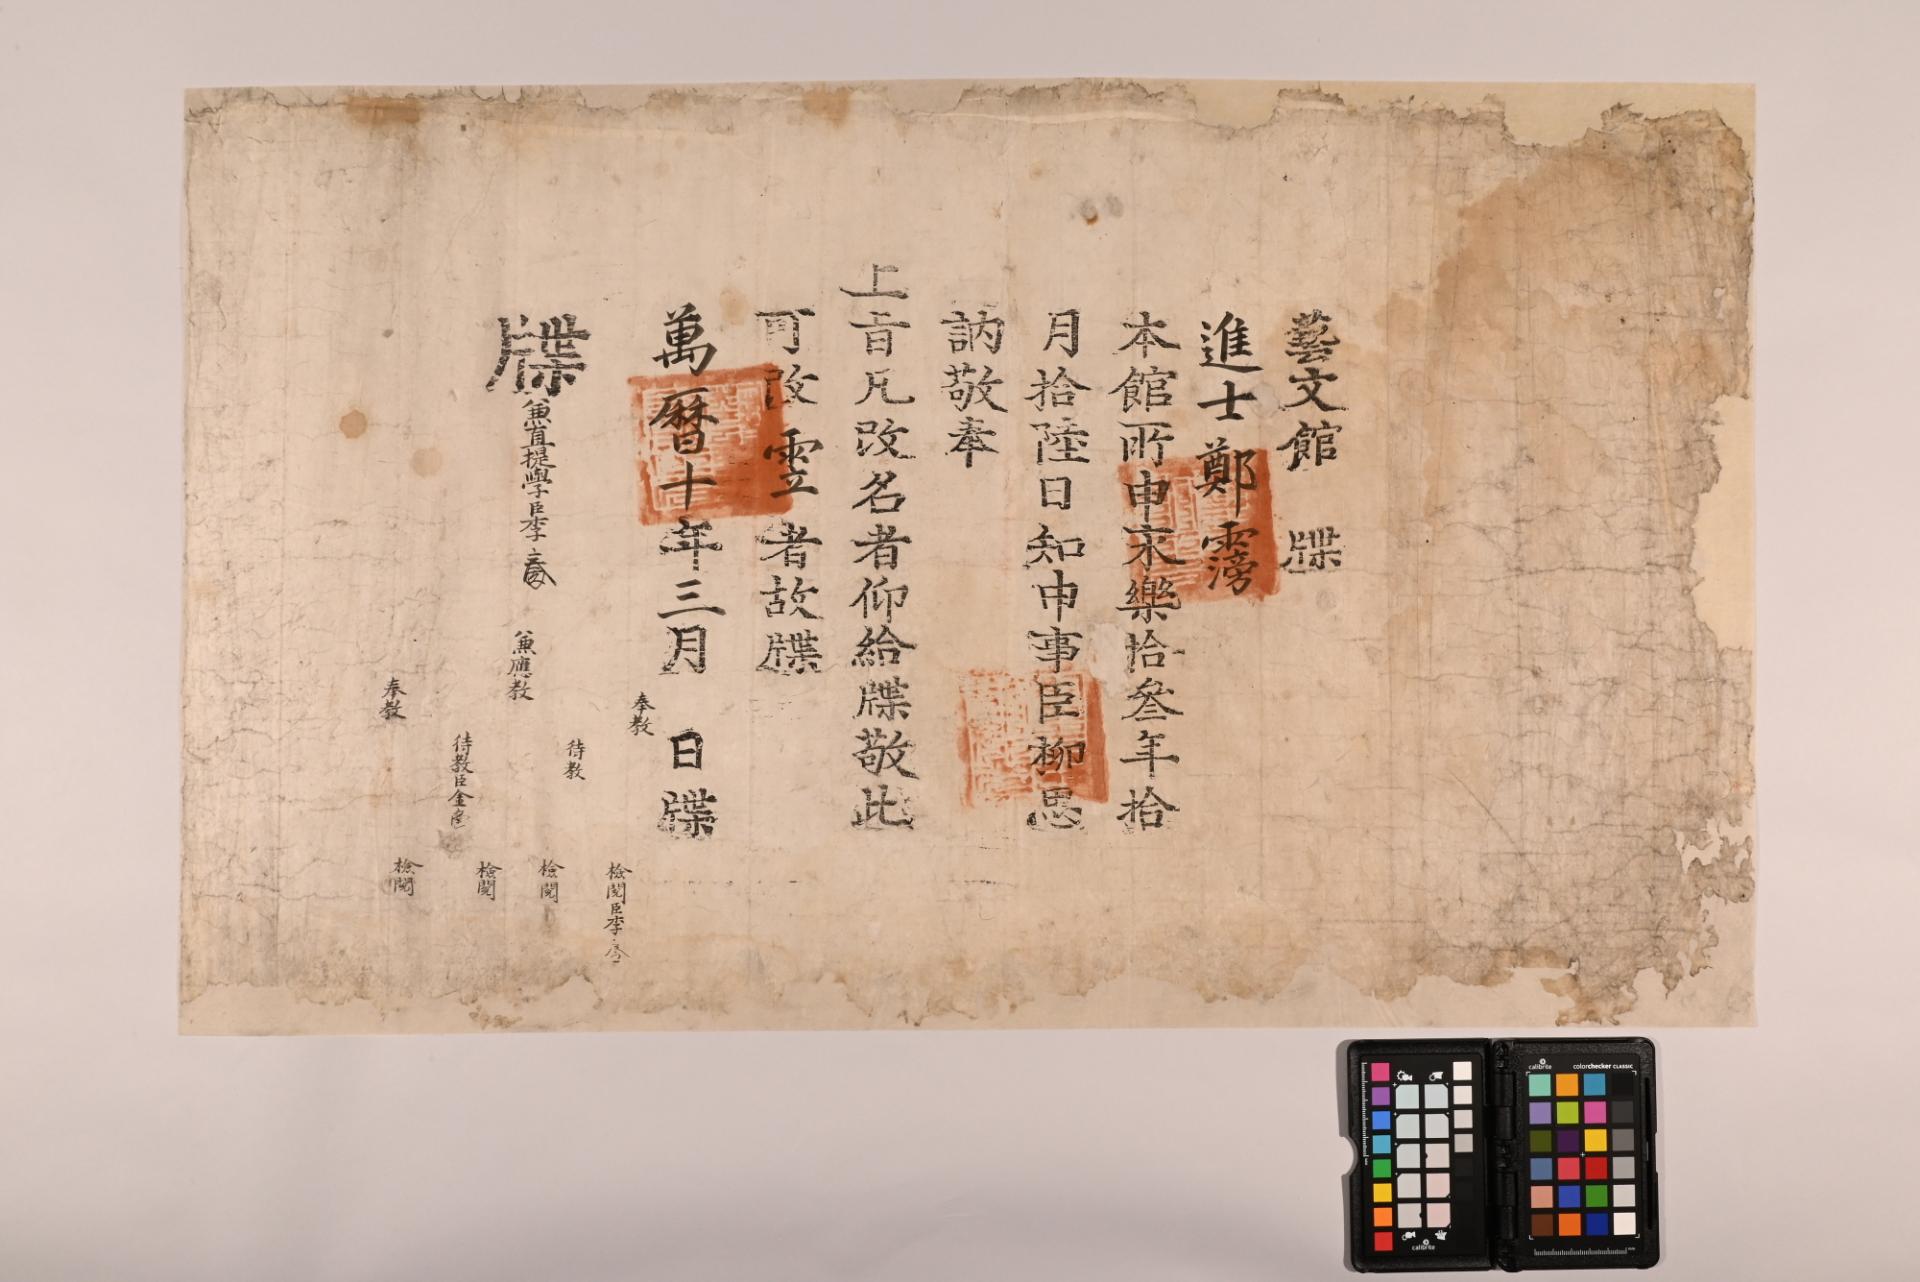 藝文館 牒
進士鄭霶
本館所申永樂拾叄年拾
月拾陸日知申事臣柳思
訥敬奉
上旨凡改名者仰給牒敬此
可改 者故牒
萬曆十年三月 日牒
牒
兼直提學臣李
兼應敎
奉敎
待敎
檢閱臣李
檢閱
待敎臣金
檢閱
奉敎
檢閱
calibrite
calibrite
colorchecker CLASSIC